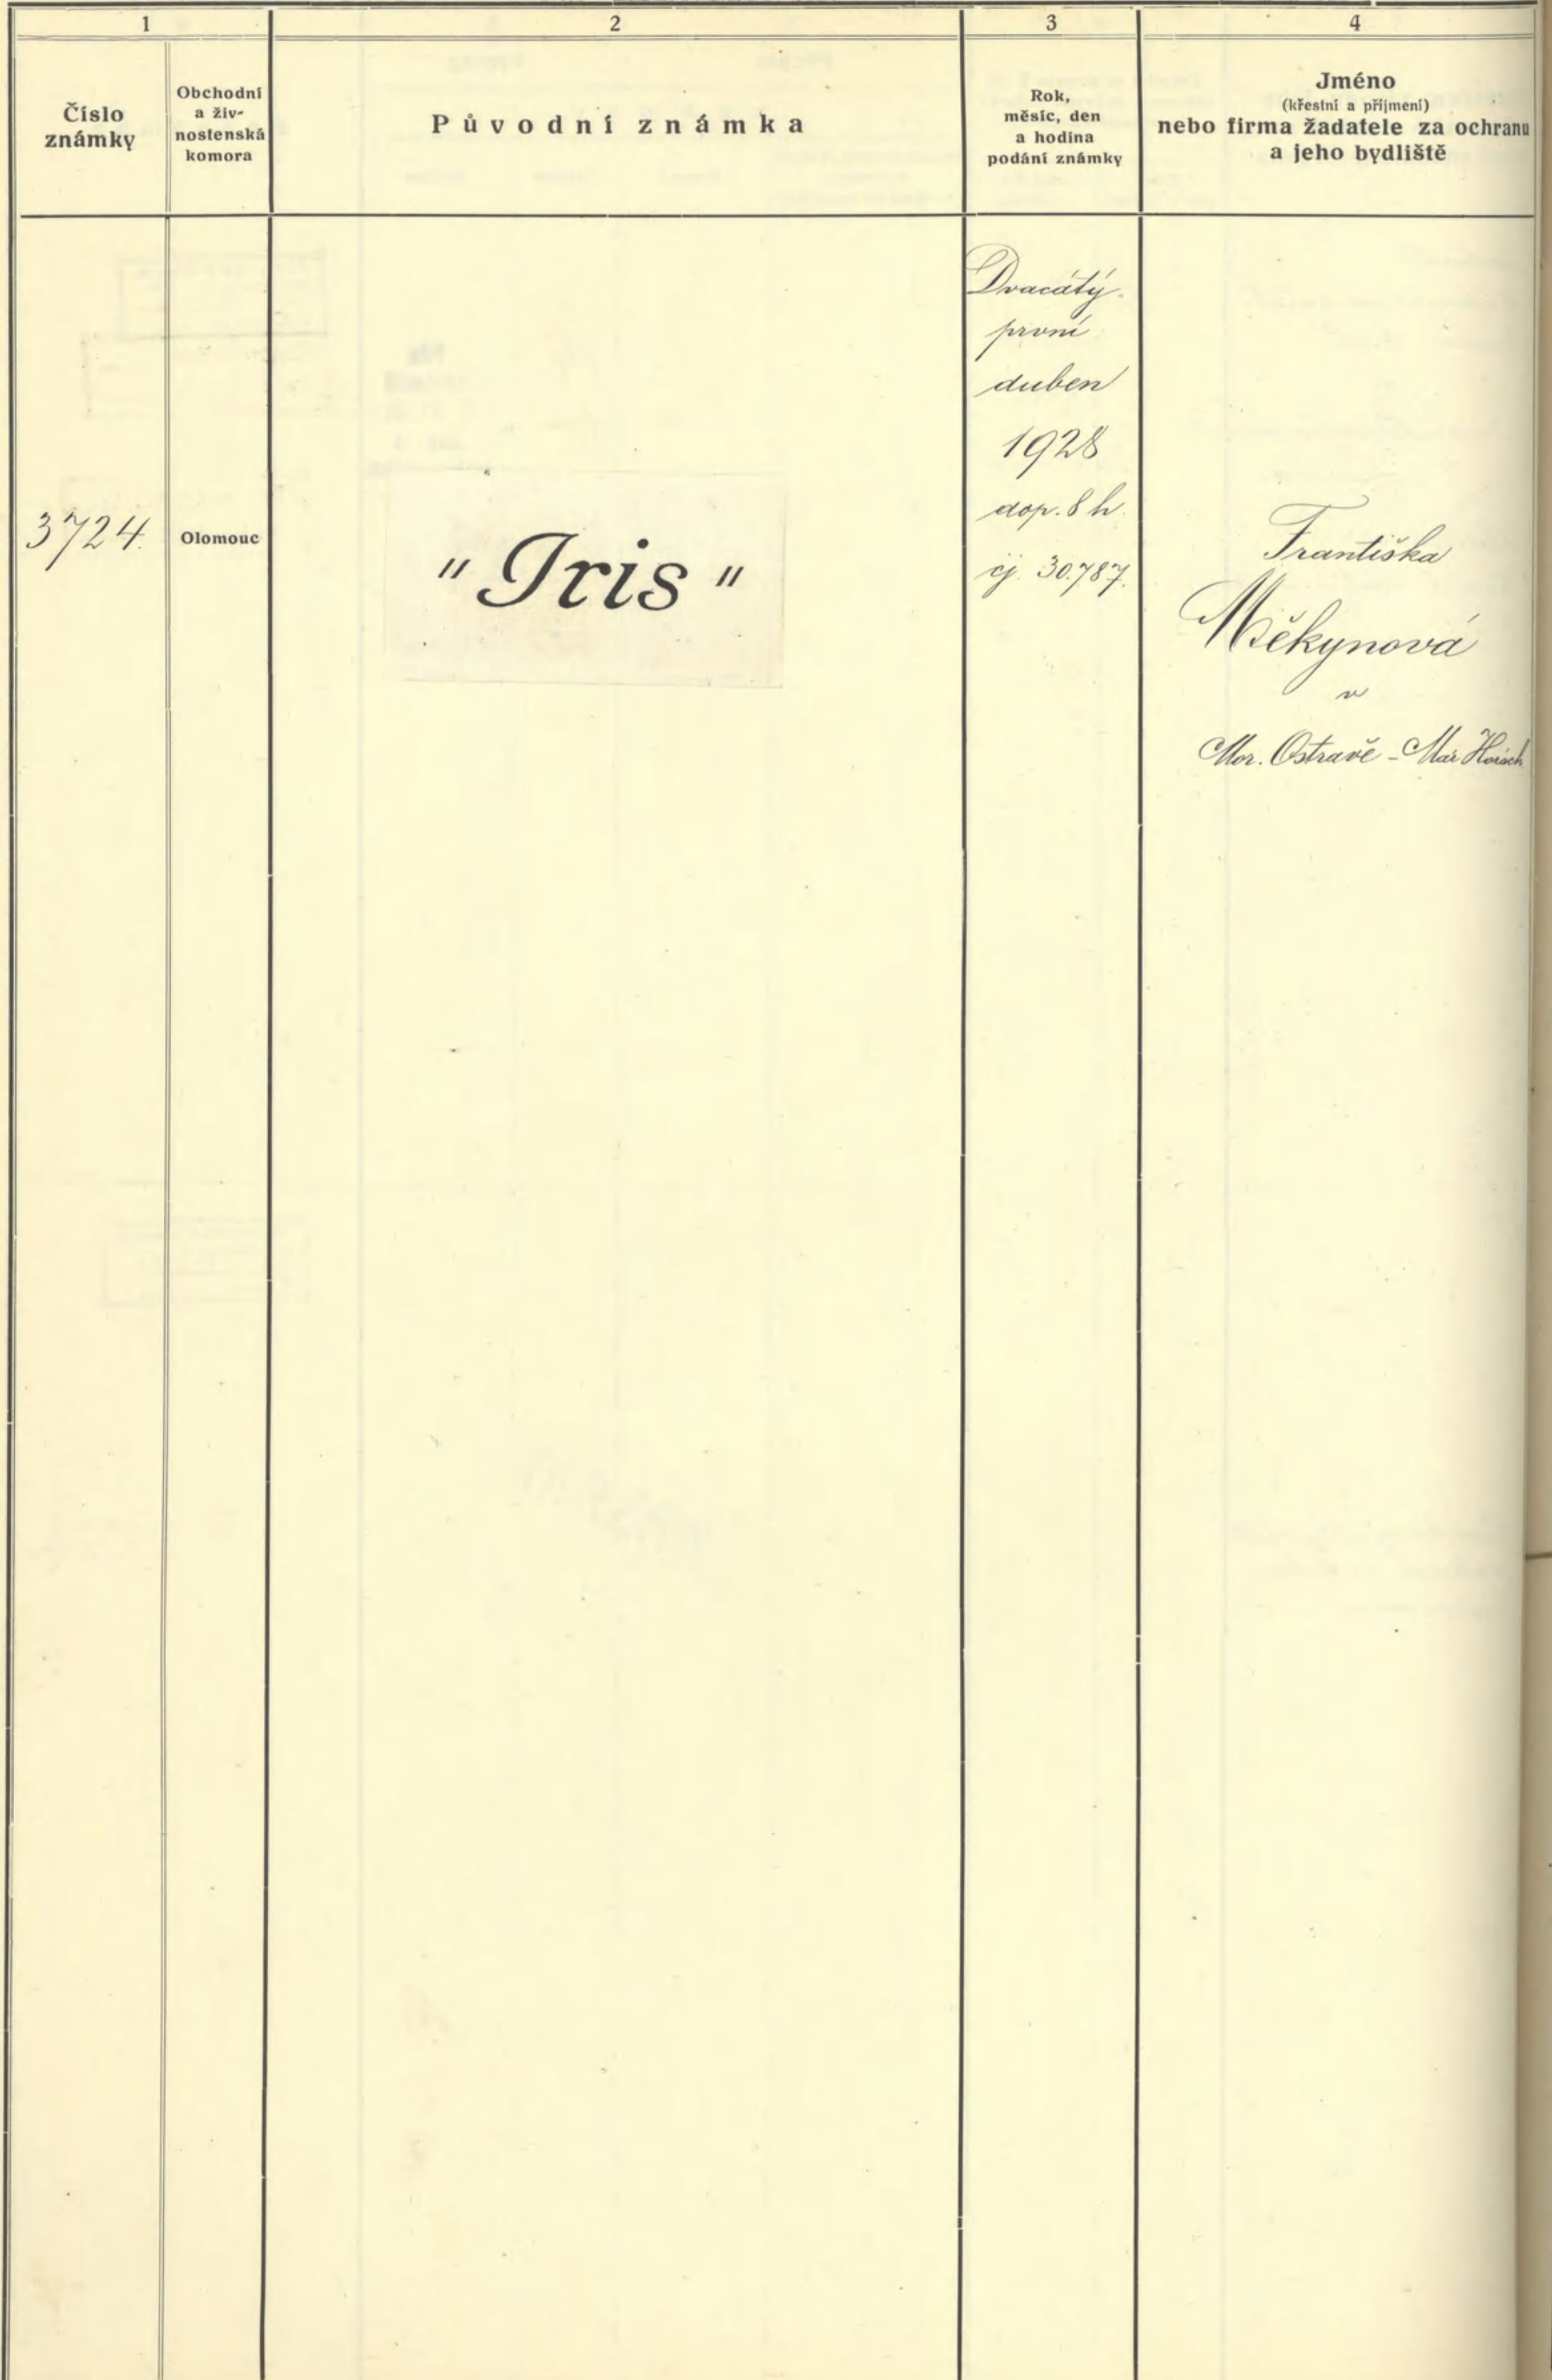 1
2
3
4
Číslo
známky
Obchodní
a živ-
nostenská
komora
Původní známka
Rok,
měsíc, den
a hodina
podání známky
Jméno
(křestní a příjmení)
nebo firma žadatele za ochranu
a jeho bydliště
3724.
Olomouc
"Iris"
Dvacátý
první
duben
1928
dop. 8 h.
čj. 30.787.
Františka
Měkynová
v
Mor. Ostravě - Mar. Horách